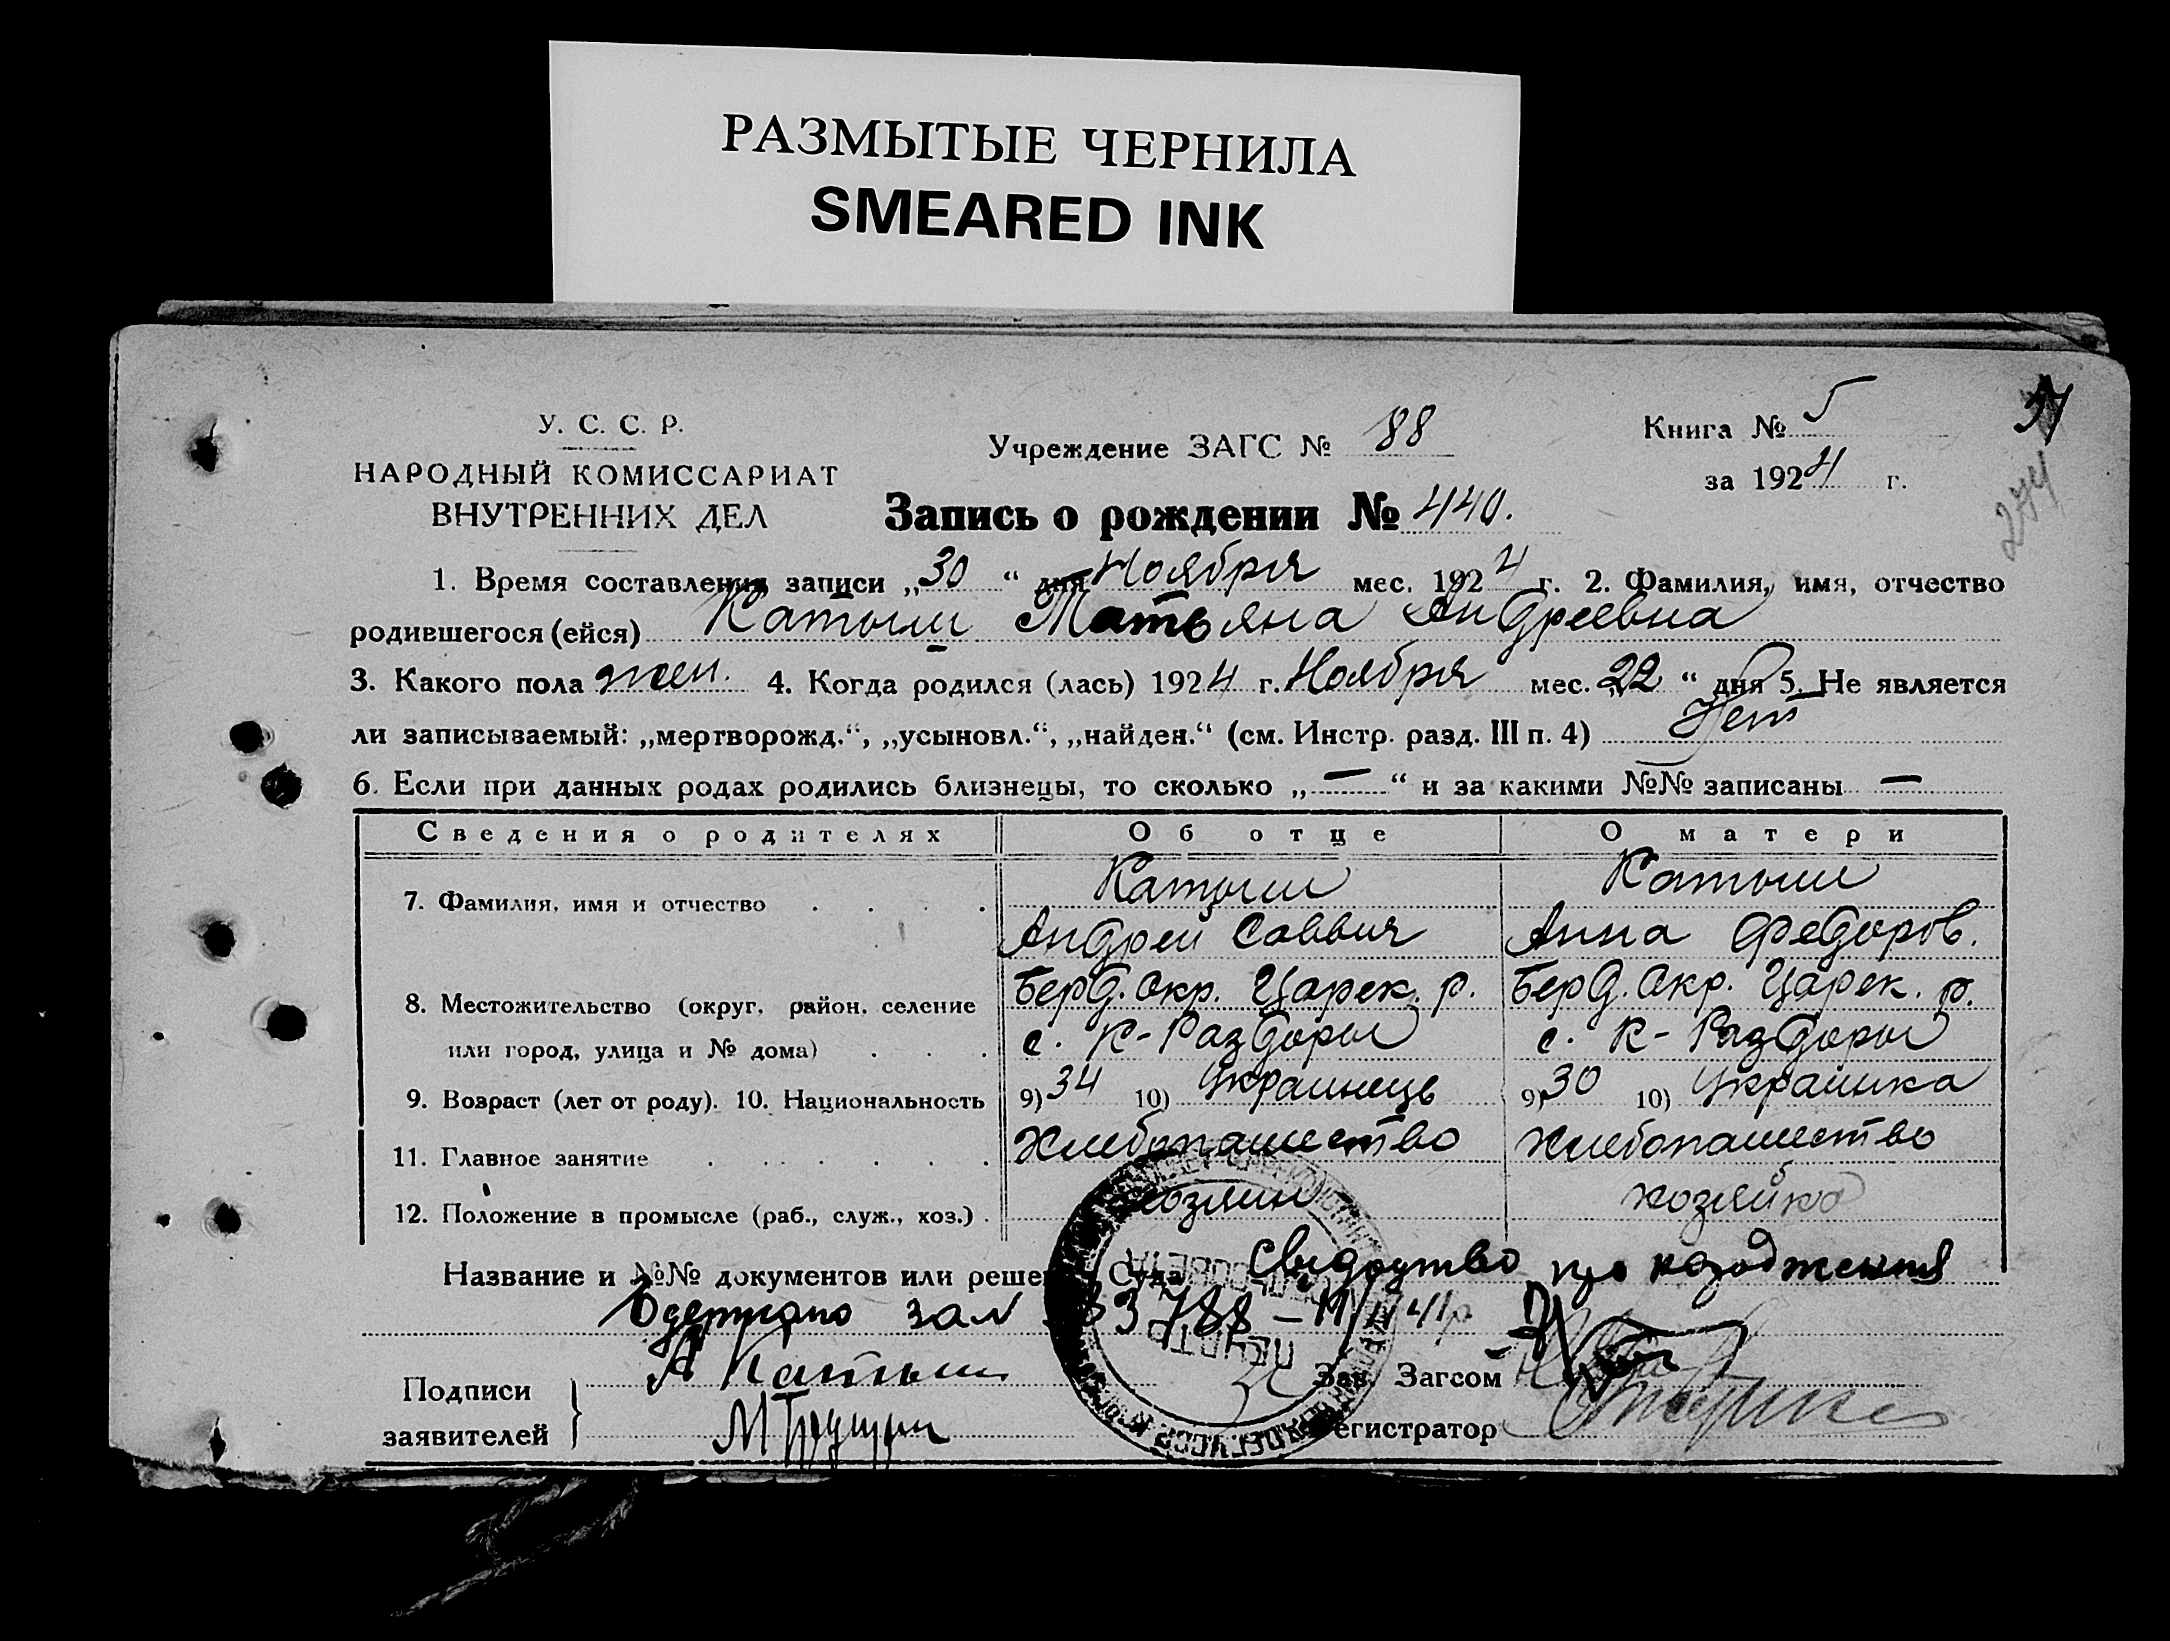 РАЗМЫТЫЕ ЧЕРНИЛА
SMEARED INK
У. С. С. Р.
НАРОДНЫЙ КОМИССАРИАТ
ВНУТРЕННИХ ДЕЛ
Учреждение ЗАГС № 88
Книга № 5
за 1924 г.
274
Запись о рождении № 440.
1. Время составления записи „30“ дня Ноября мес. 1924 г. 2. Фамилия, имя, отчество
родившегося (ейся) Катыш Татьяна Андреевна
3. Какого пола жен. 4. Когда родился (лась) 1924 г. Ноября мес. „22“ дня 5. Не является
ли записываемый: „мертворожд.“, „усыновл.“, „найден.“ (см. Инстр. разд. III п. 4) Нет
6. Если при данных родах родились близнецы, то сколько „—“ и за какими №№ записаны —
Сведения о родителях Об отце О матери
7. Фамилия, имя и отчество Катыш Катыш
Андрей Саввич Анна Федоров.
8. Местожительство (округ, район, селение Берд. Окр. Царек. р. Берд. Окр. Царек. р.
или город, улица и № дома) с. К-Раздоры с. К-Раздоры
9. Возраст (лет от роду). 10. Национальность 9) 34 10) Украинець 9) 30 10) Украинка
11. Главное занятие Хлебопашество Хлебопашество
12. Положение в промысле (раб., служ., хоз.) хозяин хозяйка
Название и №№ документов или решения Суда Свидоцтво про народження
Одержано зал
Подписи А Катыш Зав. Загсом
заявителей М Регистратор